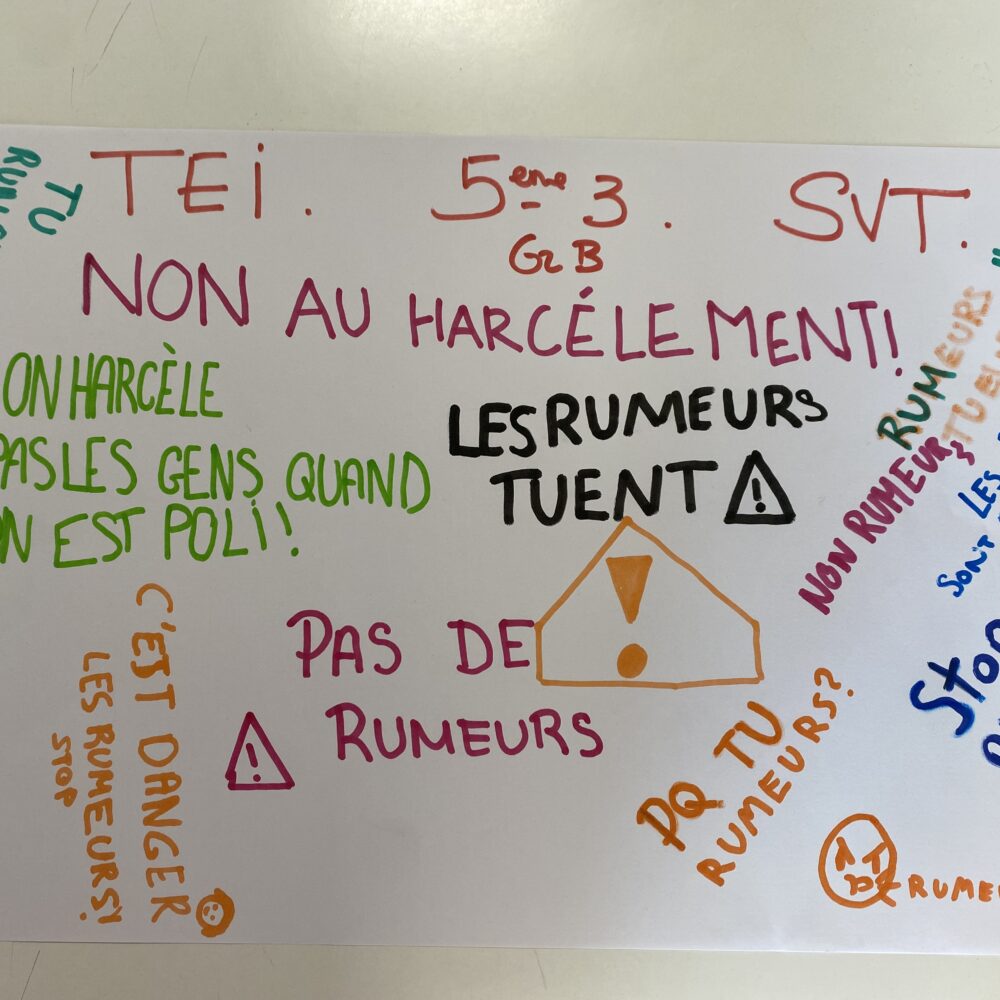 TU
TEi. 5eme 3. SVT.
Gr B
NON AU HARCÉLEMENT!
ON HARCÈLE
PAS LES GENS QUAND
ON EST POLI!
LES RUMEURS
TUENT
!
RUMEURS
TUE
NON RUMEURS
LES
SONT
STOP
PAS DE
!
RUMEURS
!
C'EST DANGER
LES RUMEURS!
STOP
PQ TU
RUMEURS?
RUME